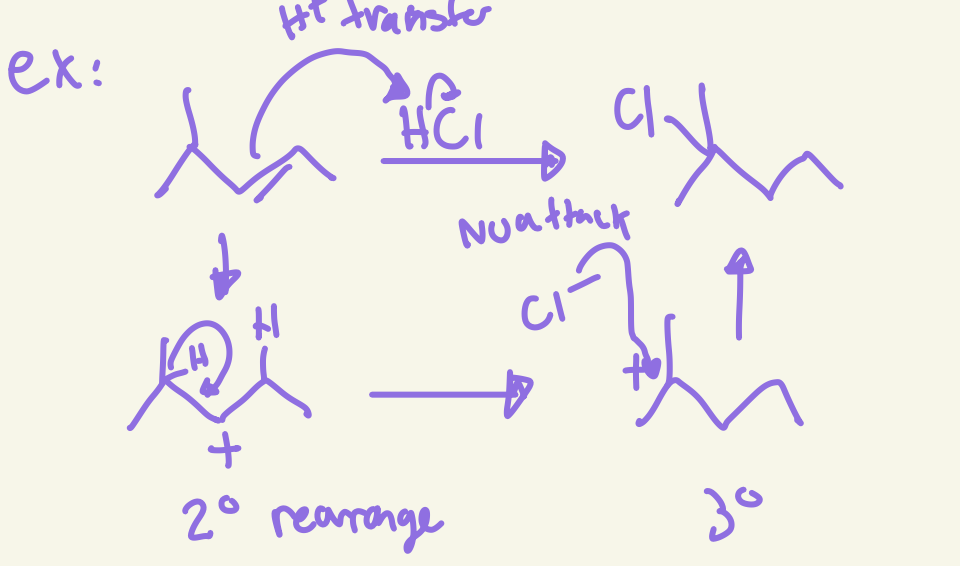 H+ transfer
ex:
HCl
Cl
Nu attack
Cl –
H
H
+
+
2° rearrange
3°